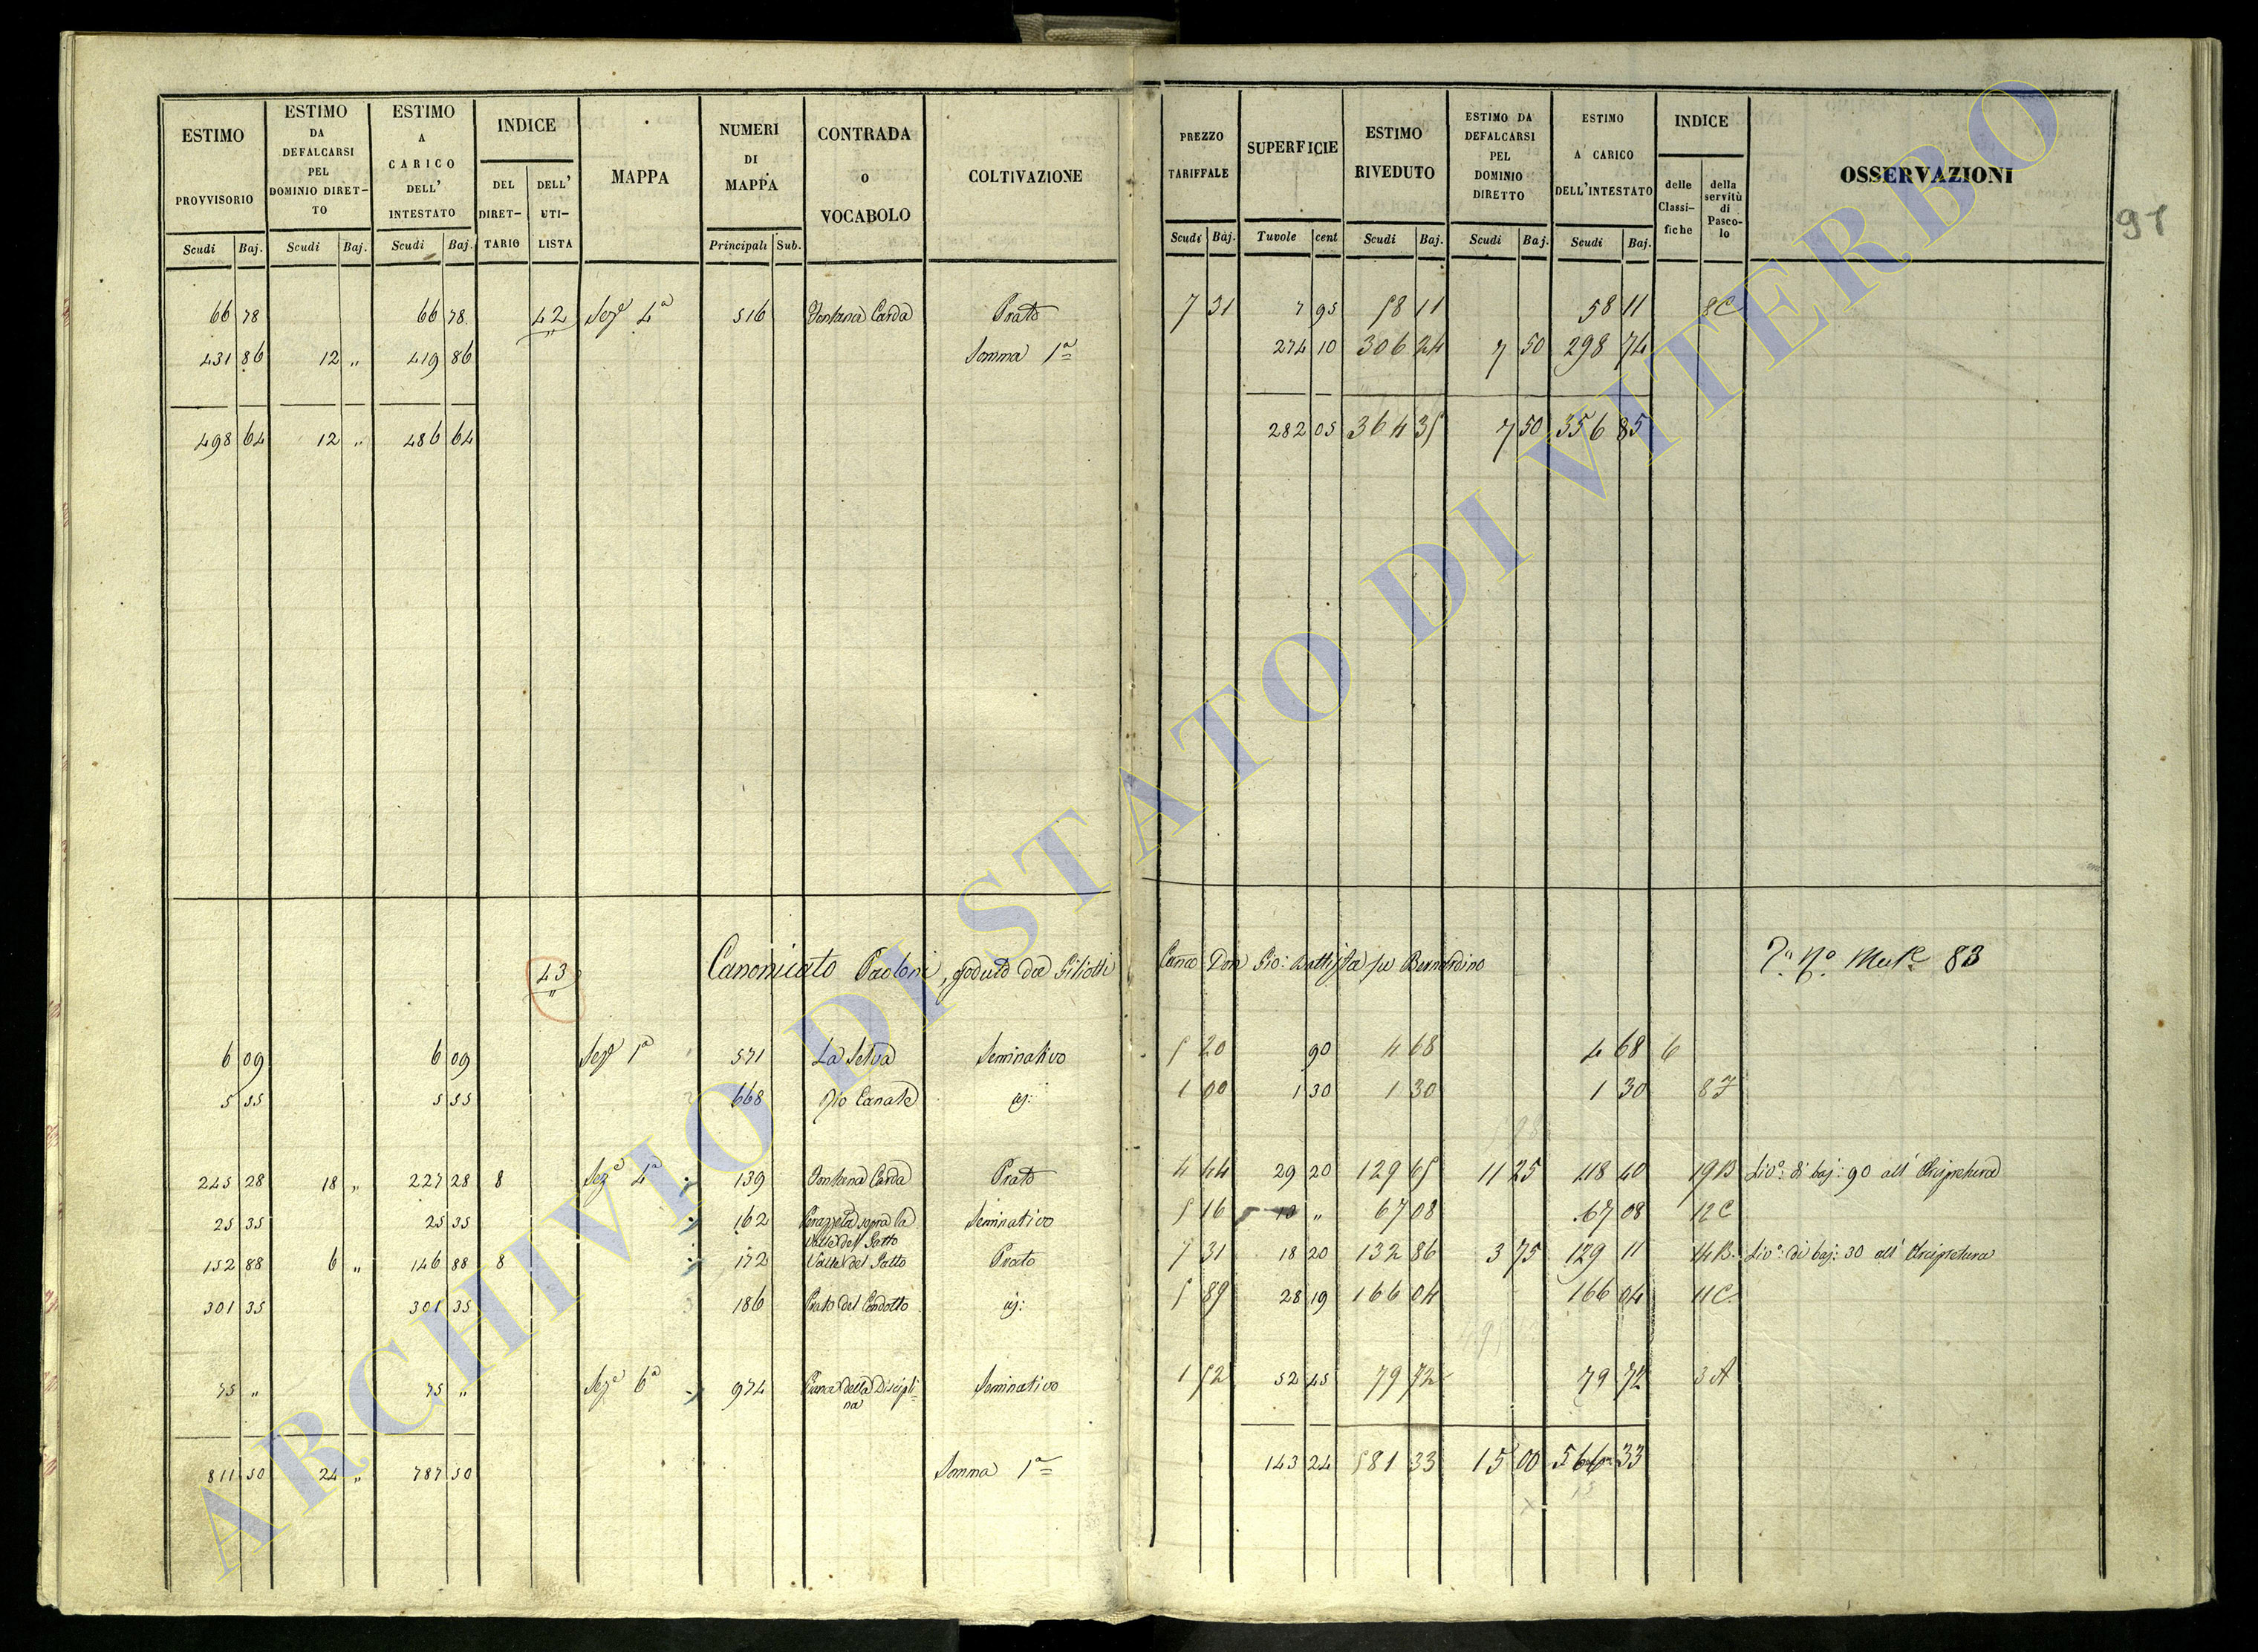 ESTIMO PROVVISORIO Scudi Baj. | ESTIMO DA DEFALCARSI PEL DOMINIO DIRETTO Scudi Baj. | ESTIMO A CARICO DELL' INTESTATO Scudi Baj. | INDICE DEL DIRETTARIO DELL' UTILISTA | MAPPA | NUMERI DI MAPPA Principali Sub. | CONTRADA O VOCABOLO | COLTIVAZIONE | PREZZO TARIFFALE Scudi Baj. | SUPERFICIE Tavole cent | ESTIMO RIVEDUTO Scudi Baj. | ESTIMO DA DEFALCARSI PEL DOMINIO DIRETTO Scudi Baj. | ESTIMO A CARICO DELL'INTESTATO Scudi Baj. | INDICE delle Classifiche della servitù di Pascolo | OSSERVAZIONI
91
66 78 66 78 42 Seze 4a 516 Fontana Carda Prato 7 31 7 95 58 11 58 11 8C
431 86 12 „ 419 86 Somma 1a 274 10 306 24 7 50 298 74
498 64 12 „ 486 64 282 05 364 35 7 50 356 85
43 Canonicato Paoloni, goduto da Giliotti Canco Don Gio: Battista fu Bernardino 83
6 09 6 09 Seze 1a 571 La Selva Seminativo 5 20 90 4 68 4 68 6
5 55 5 55 668 Rio Canale 1 00 1 30 1 30 1 30 8
245 28 18 „ 227 28 8 Seze 4a 139 Fontana Carda Prato 4 44 29 20 129 65 11 25 118 40 19B Livo: di baj: 90 all' Arcipretura
25 35 25 35 162 sopra la Valle del Gatto Seminativo 5 16 13 „ 67 08 67 08 12C
152 88 6 „ 146 88 8 172 Valle del Gatto Prato 7 31 18 20 132 86 3 75 129 11 14B Livo: di baj: 30 all' Arcipretura
301 35 301 35 186 Prato del Condotto 5 89 28 19 166 04 166 04 11C
75 „ 75 „ Seze 6a 974 Piana della Disciplina Seminativo 1 52 52 45 79 72 79 72 3A
811 50 24 „ 787 50 Somma 1a 143 24 581 33 15 00 566 33
ARCHIVIO DI STATO DI VITERBO